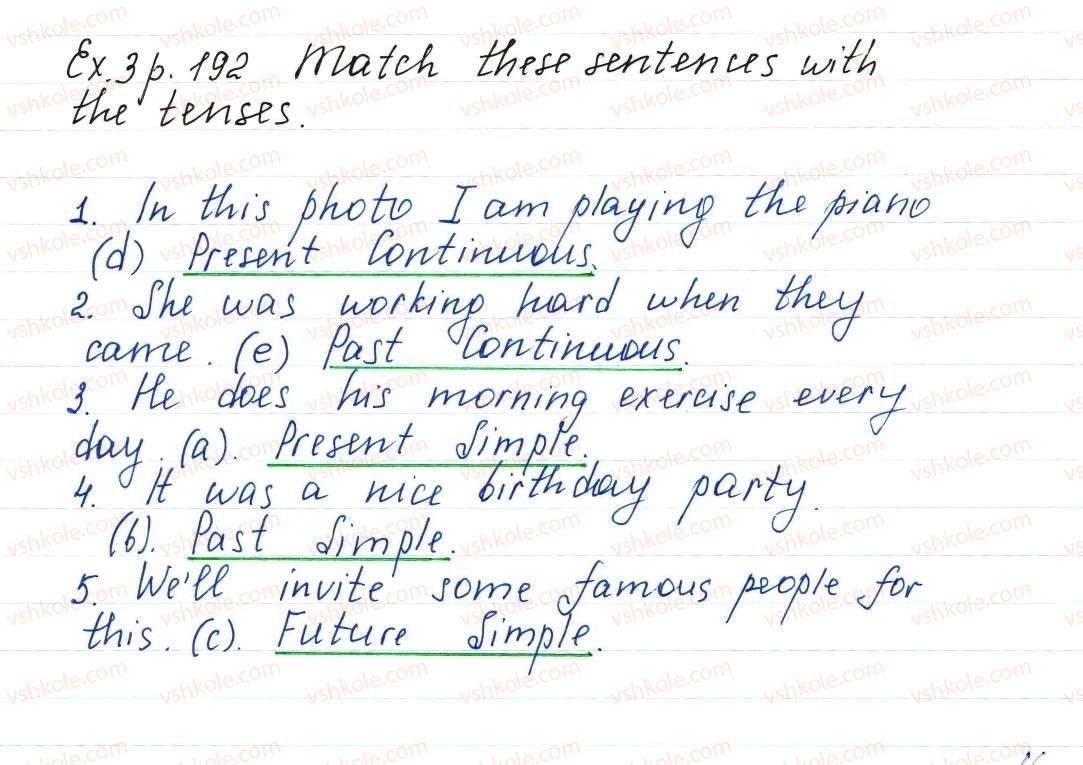 Ex. 3 p. 192 Match these sentences with
the tenses.
1. In this photo I am playing the piano
(d) Present Continuous.
2. She was working hard when they
came. (e) Past Continuous.
3. He does his morning exercise every
day. (a). Present Simple.
4. It was a nice birthday party.
(b). Past Simple.
5. We'll invite some famous people for
this. (c). Future Simple.
vshkole.com